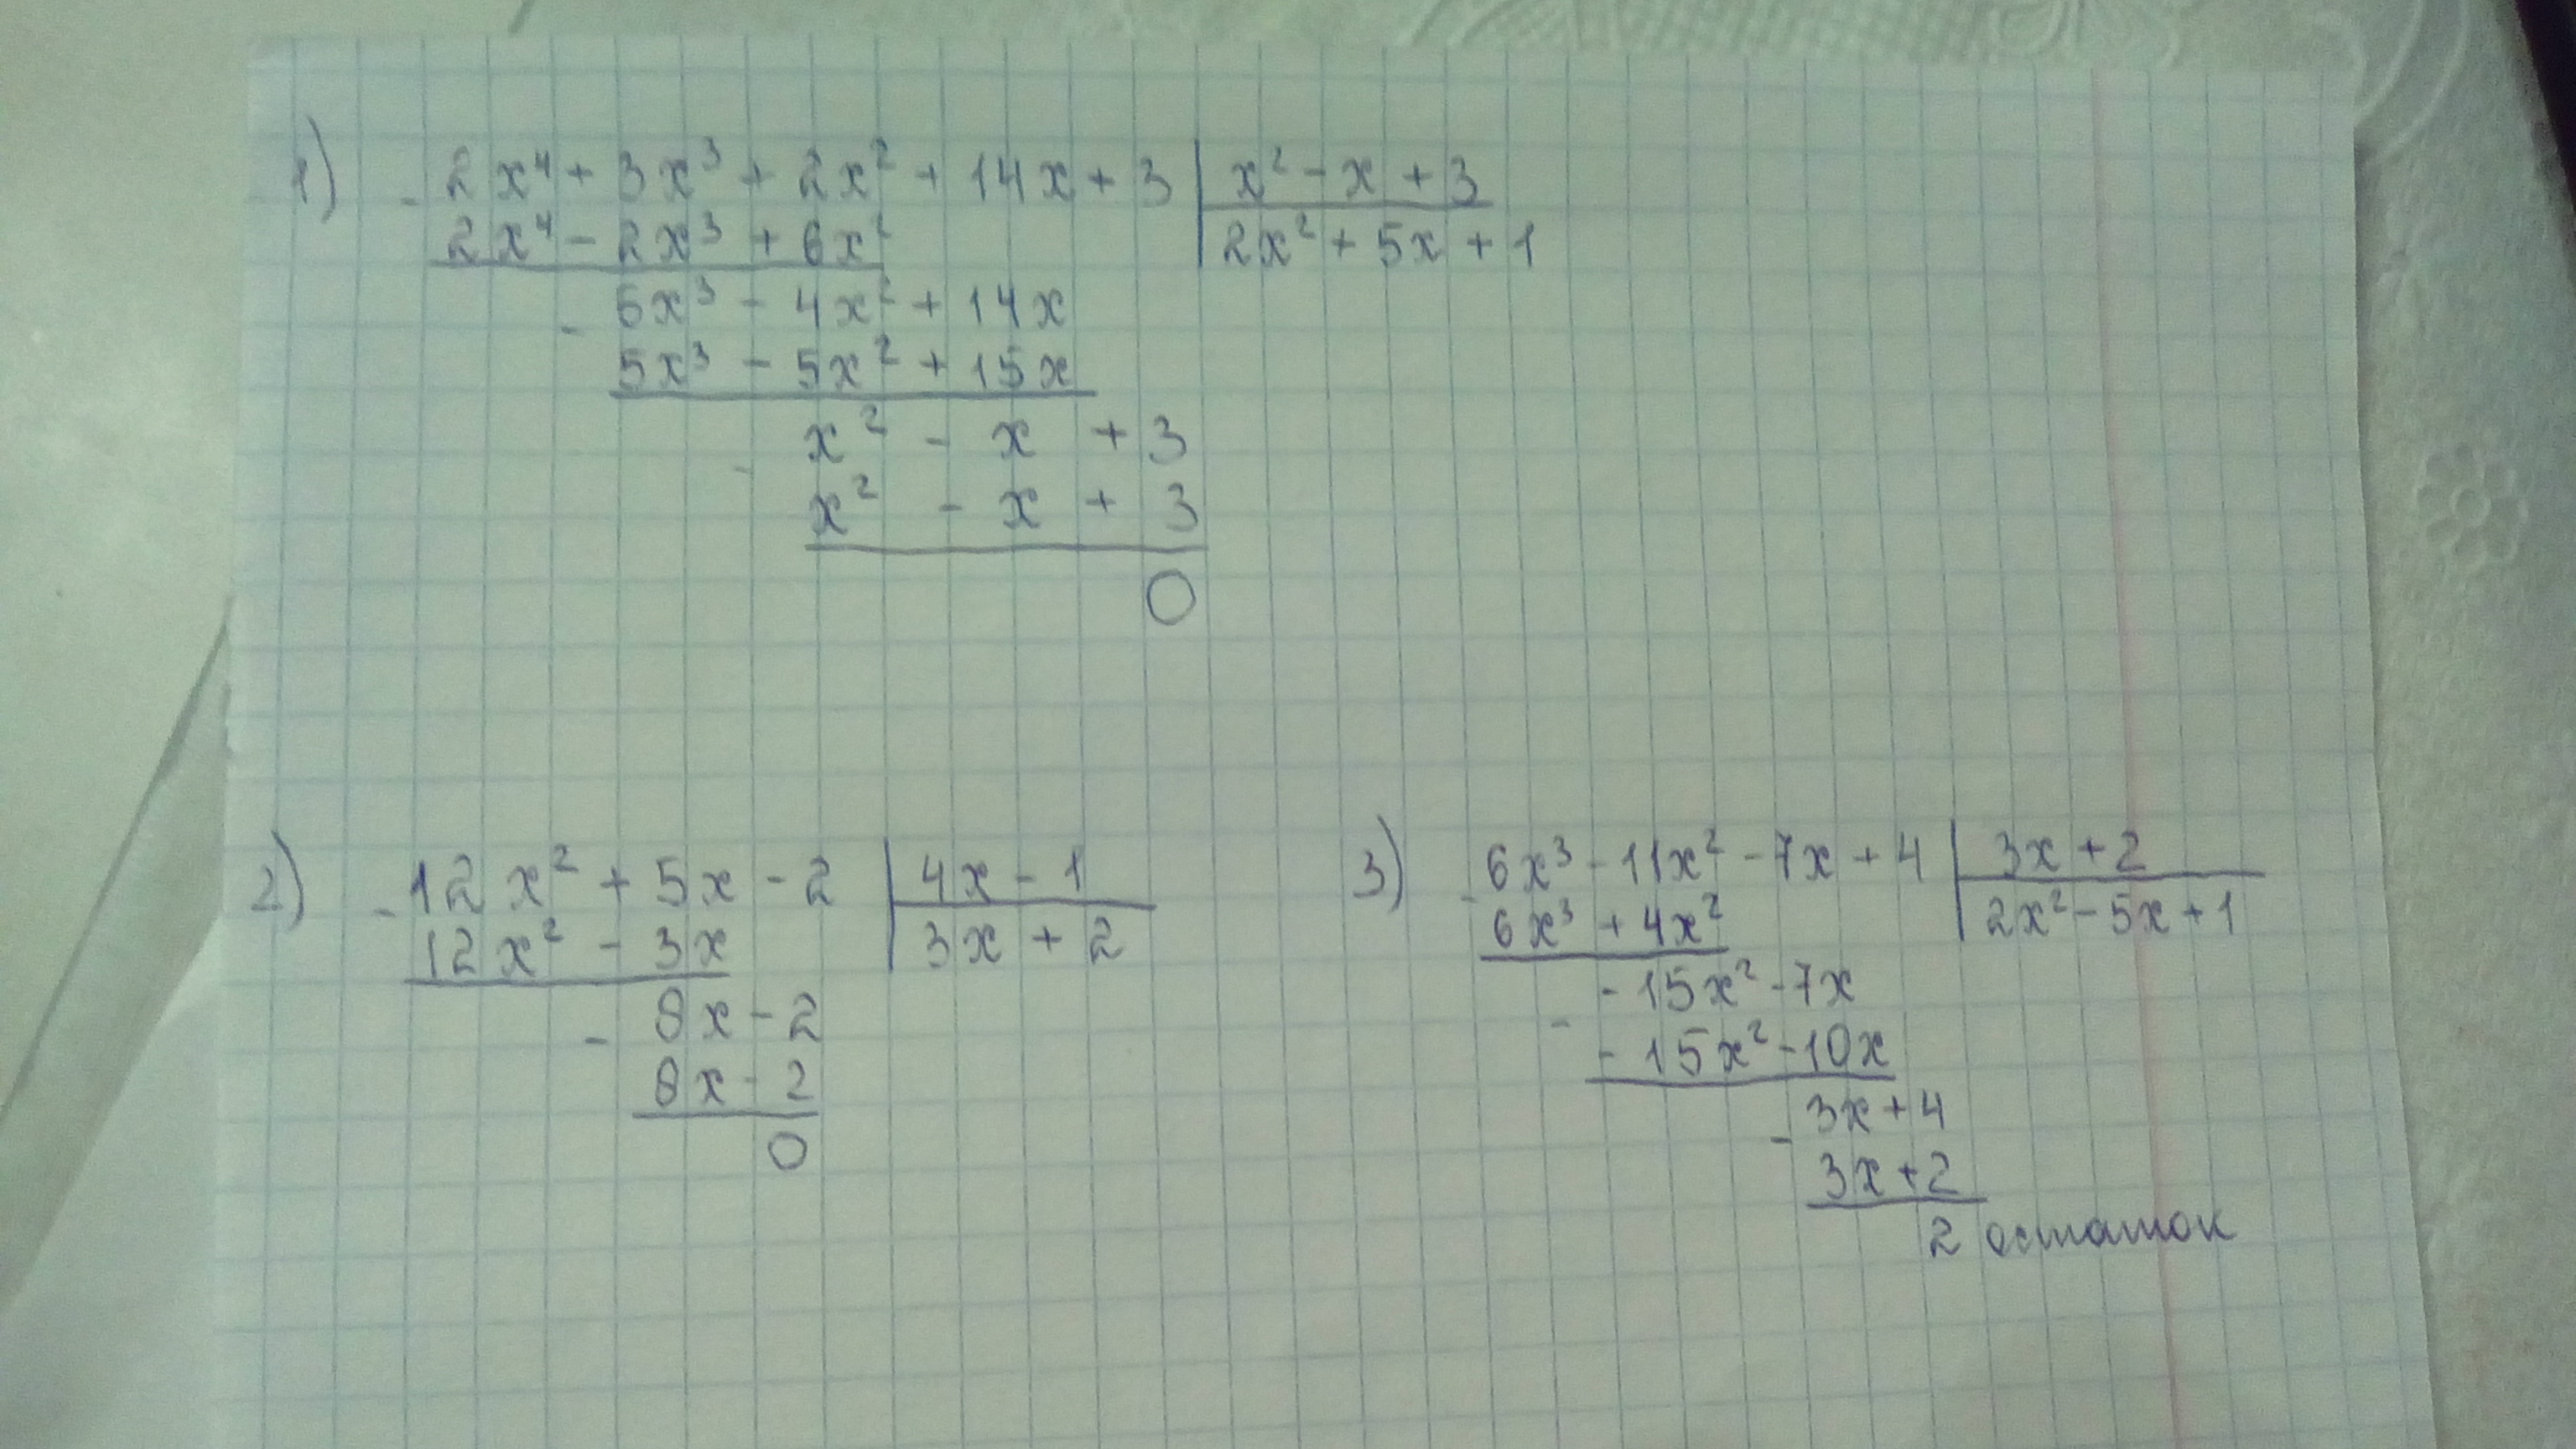 1) - 2x⁴ + 3x³ + 2x² + 14x + 3 | x² - x + 3
2x⁴ - 2x³ + 6x² | 2x² + 5x + 1
- 5x³ - 4x² + 14x
5x³ - 5x² + 15x
- x² - x + 3
x² - x + 3
0
2) - 12x² + 5x - 2 | 4x - 1
12x² - 3x | 3x + 2
- 8x - 2
8x - 2
0
3) - 6x³ - 11x² - 7x + 4 | 3x + 2
6x³ + 4x² | 2x² - 5x + 1
- - 15x² - 7x
- 15x² - 10x
- 3x + 4
3x + 2
2 остаток